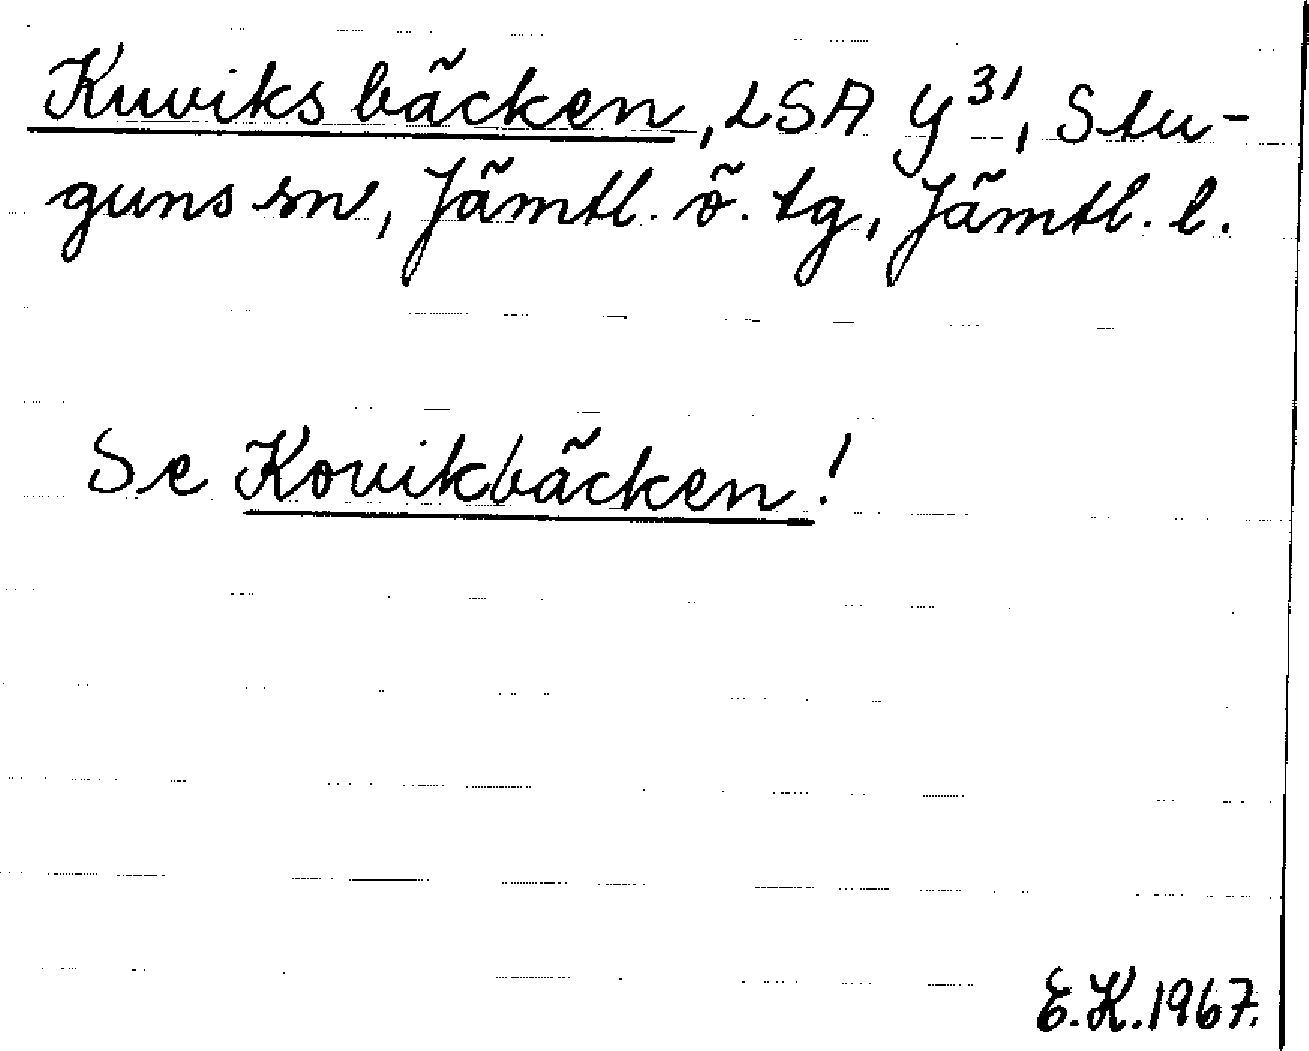 Kuviksbäcken, LSA Y³¹, Stu-
guns sn, Jämtl. ö. tg, Jämtl. l.
Se Kovikbäcken!
E.K. 1967.